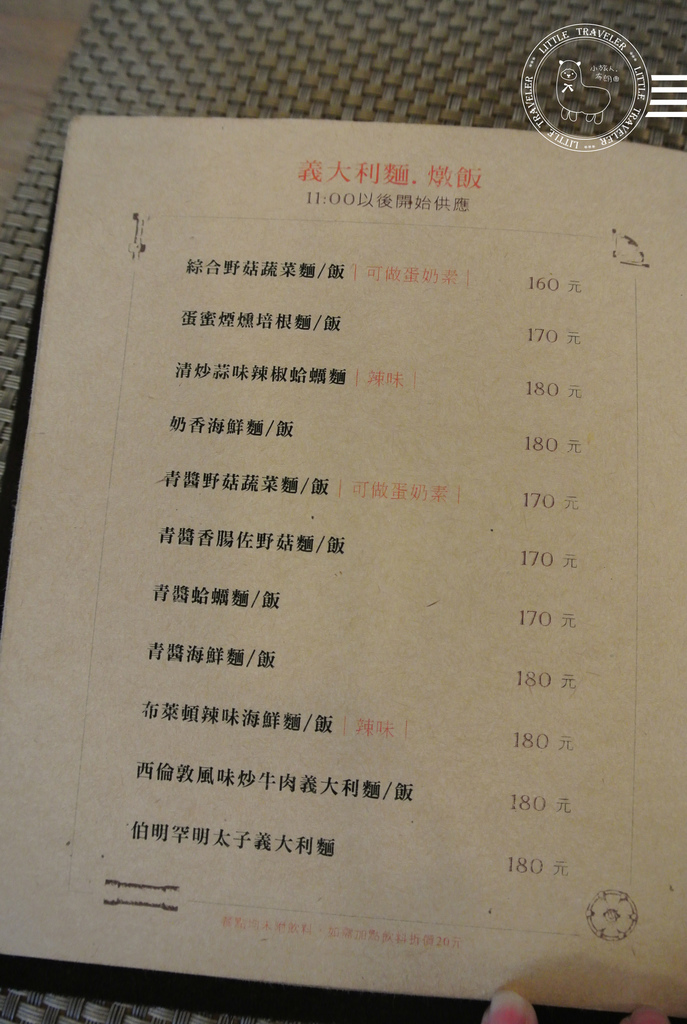 LITTLE TRAVELER *** LITTLE TRAVELER *** LITTLE TRAVELER ***
義大利麵．燉飯
11:00以後開始供應
綜合野菇蔬菜麵/飯｜可做蛋奶素｜ 160 元
蛋蜜煙燻培根麵/飯 170 元
清炒蒜味辣椒蛤蠣麵｜辣味｜ 180 元
奶香海鮮麵/飯 180 元
青醬野菇蔬菜麵/飯｜可做蛋奶素｜ 170 元
青醬香腸佐野菇麵/飯 170 元
青醬蛤蠣麵/飯 170 元
青醬海鮮麵/飯 180 元
布萊頓辣味海鮮麵/飯｜辣味｜ 180 元
西倫敦風味炒牛肉義大利麵/飯 180 元
伯明罕明太子義大利麵 180 元
餐點均未附飲料，如需加點飲料折價20元